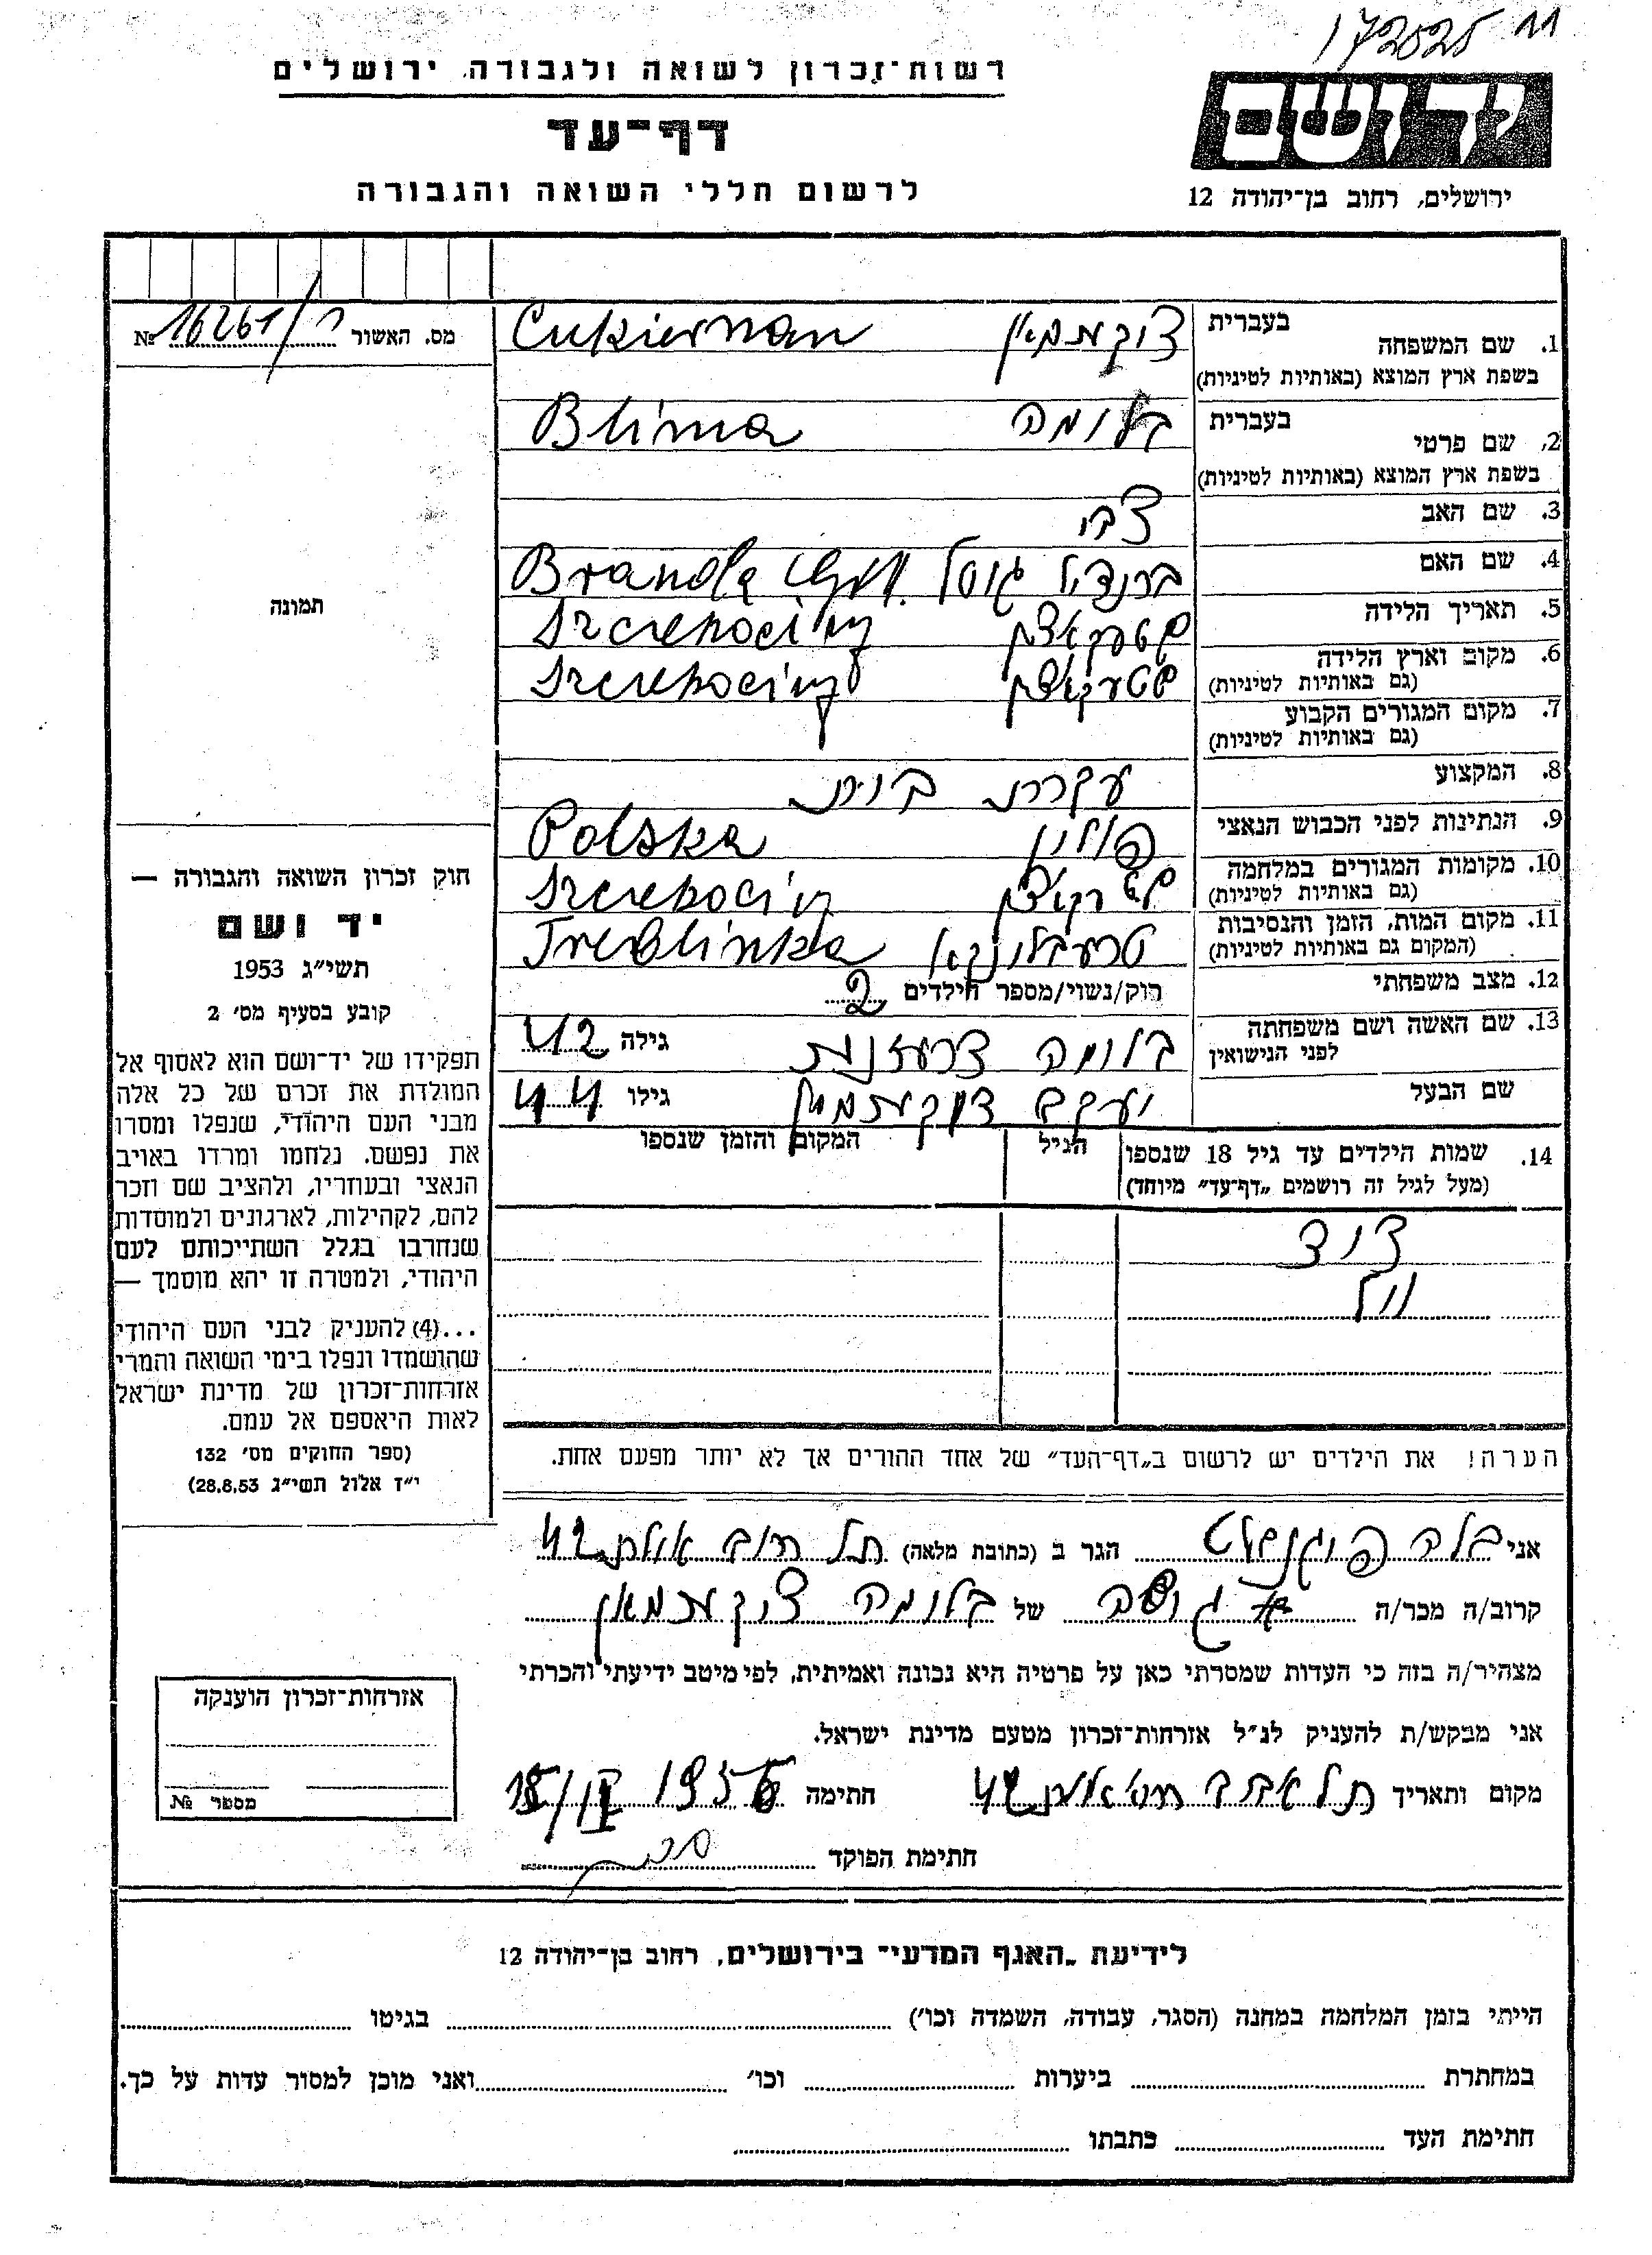 רשות־זכרון לשואה ולגבורה, ירושלים
דף־עד
לרשום חללי השואה והגבורה
יד ושם
ירושלים, רחוב בן־יהודה 12
מס. האשור 16261/ № 
1. שם המשפחה בעברית צוקערמאן Cukierman
בשפת ארץ המוצא (באותיות לטיניות)
2. שם פרטי בעברית בלומה Blima
בשפת ארץ המוצא (באותיות לטיניות)
3. שם האב צבי
4. שם האם ברנדיל Brandla
5. תאריך הלידה Szczekociny
6. מקום וארץ הלידה Szczekociny
(גם באותיות לטיניות)
7. מקום המגורים הקבוע
(גם באותיות לטיניות)
8. המקצוע עקרת בית
9. הנתינות לפני הכבוש הנאצי פולין Polska
10. מקומות המגורים במלחמה Szczekociny
(גם באותיות לטיניות)
11. מקום המות, הזמן והנסיבות טרעבלינקא Treblinka
(המקום גם באותיות לטיניות)
12. מצב משפחתי רוק/נשוי/מספר הילדים 2
13. שם האשה ושם משפחתה בלומה גילה 42
לפני הנישואין
שם הבעל יעקב צוקערמאן גילו 44
14. שמות הילדים עד גיל 18 שנספו הגיל המקום והזמן שנספו
(מעל לגיל זה רושמים „דף־עד" מיוחד)
דוד
תמונה
חוק זכרון השואה והגבורה —
יד ושם
תשי״ג 1953
קובע בסעיף מס׳ 2
תפקידו של יד־ושם הוא לאסוף אל
המולדת את זכרם של כל אלה
מבני העם היהודי, שנפלו ומסרו
את נפשם, נלחמו ומרדו באויב
הנאצי ובעוזריו, ולהציב שם וזכר
להם, לקהילות, לארגונים ולמוסדות
שנחרבו בגלל השתייכותם לעם
היהודי, ולמטרה זו יהא מוסמך —
...(4) להעניק לבני העם היהודי
שהושמדו ונפלו בימי השואה והמרי
אזרחות־זכרון של מדינת ישראל
לאות היאספם אל עמם.
(ספר החוקים מס׳ 132
י״ז אלול תשי״ג 28.8.53)
הערה! את הילדים יש לרשום ב„דף־העד" של אחד ההורים אך לא יותר מפעם אחת.
אני בלה הגר ב (כתובת מלאה) 42
קרוב/ה מכר/ה של בלומה צוקערמאן
מצהיר/ה בזה כי העדות שמסרתי כאן על פרטיה היא נכונה ואמיתית, לפי מיטב ידיעתי והכרתי
אני מבקש/ת להעניק לנ״ל אזרחות־זכרון מטעם מדינת ישראל.
מקום ותאריך תל אביב 42 חתימה
חתימת הפוקד
אזרחות־זכרון הוענקה
מספר №
לידיעת „האגף המדעי" בירושלים, רחוב בן־יהודה 12
הייתי בזמן המלחמה במחנה (הסגר, עבודה, השמדה וכו׳) בגיטו
במחתרת ביערות וכו׳ ואני מוכן למסור עדות על כך.
חתימת העד כתבתו